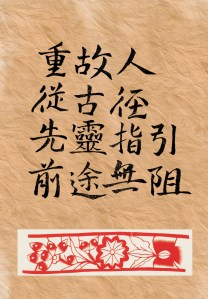 重故人
從古徑
先靈指引
前途無阻